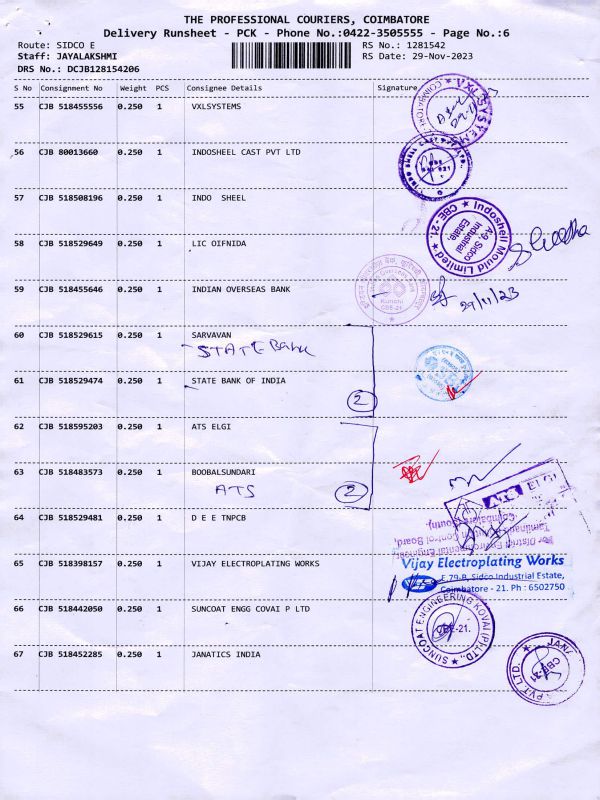 THE PROFESSIONAL COURIERS, COIMBATORE
Delivery Runsheet - PCK - Phone No.:0422-3505555 - Page No.:6
Route: SIDCO E RS No.: 1281542
Staff: JAYALAKSHMI RS Date: 29-Nov-2023
DRS No.: DCJB128154206
S No Consignment No Weight PCS Consignee Details Signature
55 CJB 518455556 0.250 1 VXLSYSTEMS
56 CJB 80013660 0.250 1 INDOSHEEL CAST PVT LTD
57 CJB 518508196 0.250 1 INDO SHEEL
Indoshell Mould Limited
A9, Sidco
Industrial
Estate,
CBE - 21.
58 CJB 518529649 0.250 1 LIC OIFNIDA
59 CJB 518455646 0.250 1 INDIAN OVERSEAS BANK
Kurichi
CBE-21
29/11/23
60 CJB 518529615 0.250 1 SARVAVAN
STATE Bank
61 CJB 518529474 0.250 1 STATE BANK OF INDIA
2
62 CJB 518595203 0.250 1 ATS ELGI
63 CJB 518483573 0.250 1 BOOBALSUNDARI
ATS
2
64 CJB 518529481 0.250 1 D E E TNPCB
For District Environmental Engineer
Tamilnadu Pollution Control Board,
Coimbatore South.
65 CJB 518398157 0.250 1 VIJAY ELECTROPLATING WORKS
Vijay Electroplating Works
E 79-B, Sidco Industrial Estate,
Coimbatore - 21. Ph : 6502750
66 CJB 518442050 0.250 1 SUNCOAT ENGG COVAI P LTD
SUNCOAT ENGINEERING KOVAI (P) LTD.,
CBE-21.
67 CJB 518452285 0.250 1 JANATICS INDIA
CBE-21